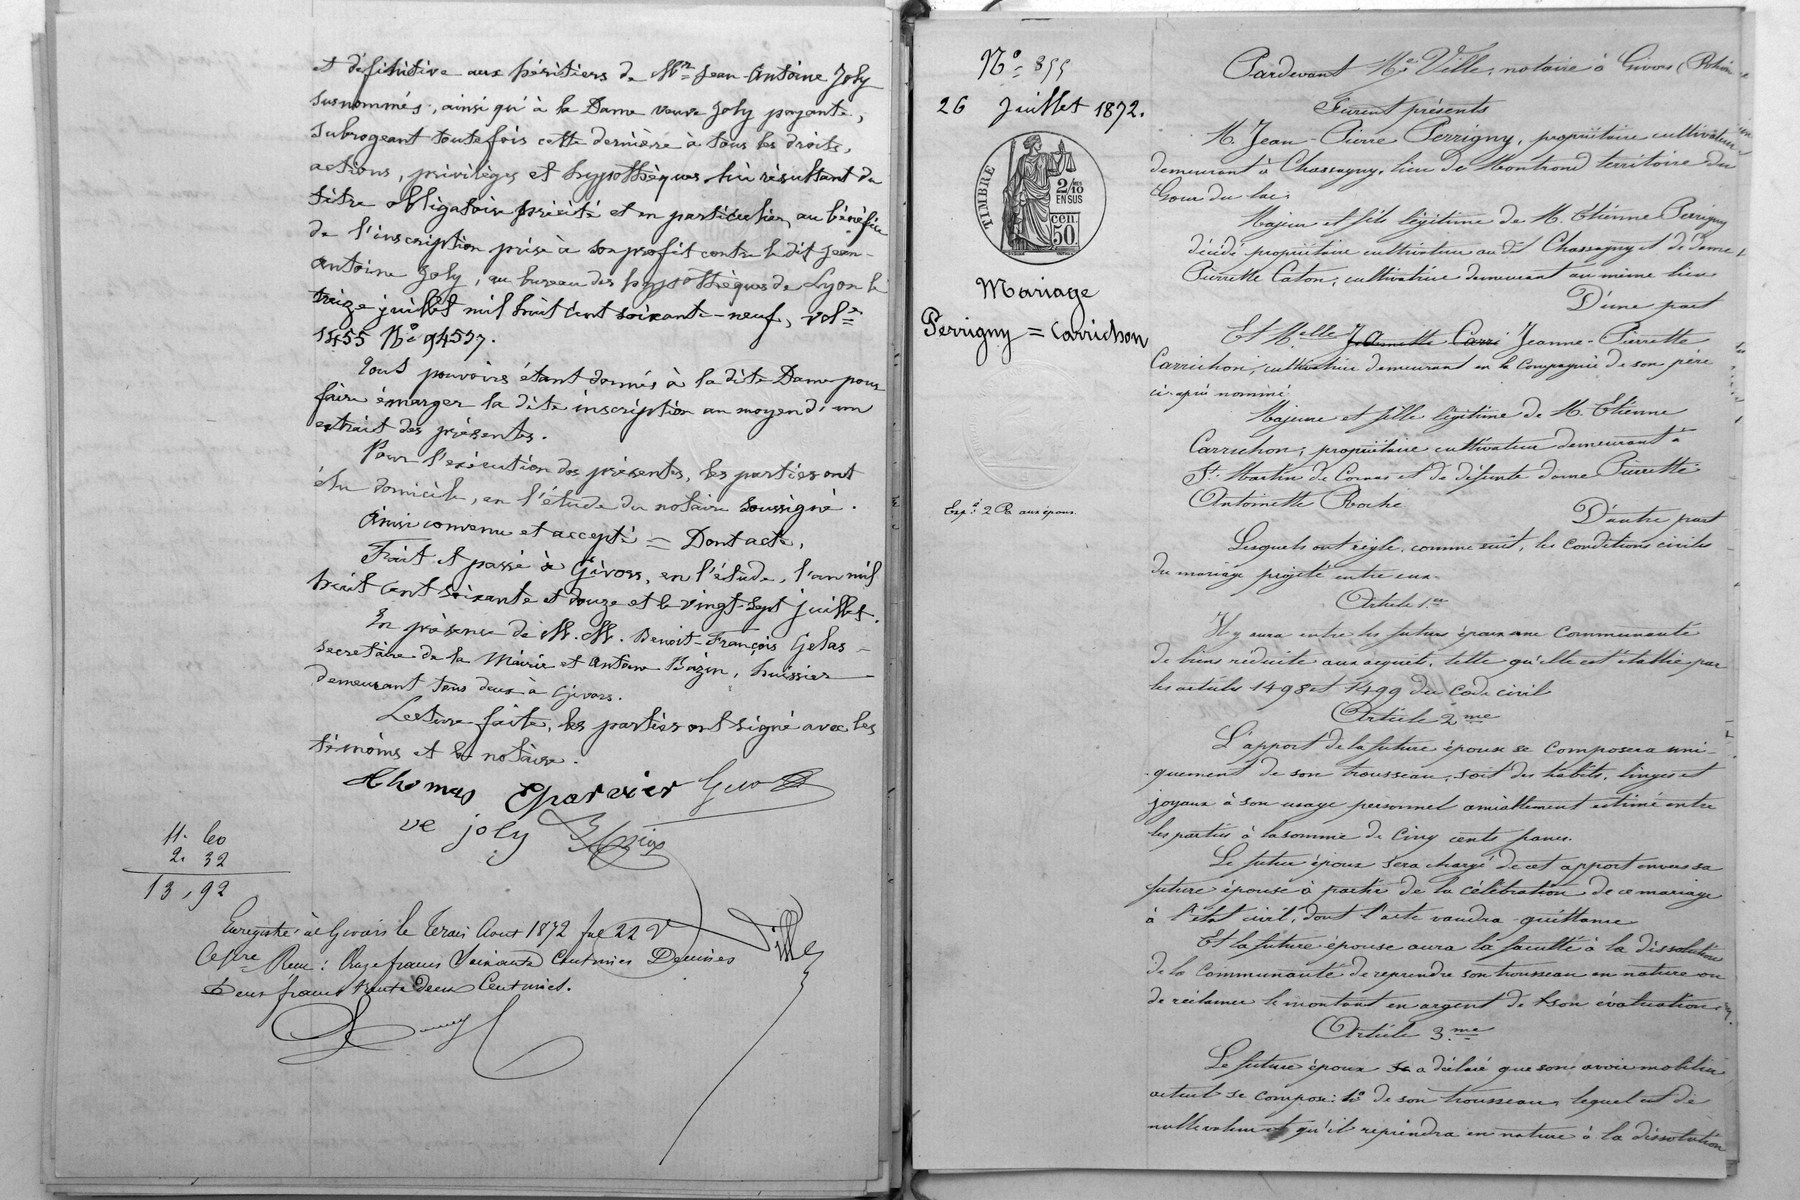 et définitive aux héritiers de Mr Jean-Antoine Joly
susnommés, ainsi qu'à la Dame veuve Joly payante,
subrogeant toutefois cette dernière à tous les droits,
actions, privilèges et hypothèques lui résultant du
titre obligatoire précité et en particulier, au bénéfice
de l'inscription prise à son profit contre le dit Jean-
Antoine Joly, au bureau des hypothèques de Lyon le
treize juillet mil huit cent soixante-neuf, vol.
1455 No 94537.
Tous pouvoirs étant donnés à la dite Dame pour
faire émarger la dite inscription au moyen d'un
extrait des présentes.
Pour l'exécution des présentes, les parties ont
élu domicile, en l'étude du notaire soussigné.
Ainsi convenu et accepté = Dont acte,
Fait et passé à Givors, en l'étude, l'an mil
huit cent soixante et douze et le vingt-sept juillet.
En présence de M. M. Benoit-François Gelas
secrétaire de la Mairie et Antoine Bazin, huissier
demeurant tous deux à Givors.
Lecture faite, les parties ont signé avec les
témoins et le notaire.
Thomas Eparvier
ve joly
11. 60
2. 32
13, 92
Ville
Enregistré à Givors le trois Aout 1872 fol 22 V
Reçu : Onze francs Soixante Centimes Decimes
Deux francs trente deux Centimes.
No 855
26 Juillet 1872.
TIMBRE
2/10 MES
EN SUS
cen.
50.
Mariage
Perrigny = Carrichon
Exp. 2 R aux époux.
Pardevant Me Ville, notaire à Givors (Rhône
Furent présents
M. Jean-Pierre Perrigny, propriétaire cultivateur
demeurant à Chassagny, lieu de Montrond territoire du
Majeur et fils légitime de M. Etienne Perrigny
décédé propriétaire cultivateur au dit Chassagny et de dame
Pierrette Caton, cultivatrice demeurant au même lieu
D'une part
Et Melle Jeanne-Pierrette
Carrichon, cultivatrice demeurant en la Compagnie de son père
ci-après nommé
Majeure et fille légitime de M. Etienne
Carrichon, propriétaire cultivateur demeurant à
St Martin de Cornas et de défunte dame Pierrette
Antoinette Roche
D'autre part
Lesquels ont réglé, comme suit, les conditions civiles
du mariage projeté entre eux.
Article 1er
Il y aura entre les futurs époux une Communauté
de biens réduite aux acquêts, telle qu'elle est établie par
les articles 1498 et 1499 du Code civil
Article 2me
L'apport de la future épouse se composera uni-
-quement de son trousseau, soit des habits, linges et
joyaux à son usage personnel amiablement estimé entre
les parties à la somme de Cinq cents francs.
Le futur époux sera chargé de cet apport envers sa
future épouse à partir de la célébration de ce mariage
à l'état civil, dont l'acte vaudra quittance
Et la future épouse aura la faculté à la dissolution
de la Communauté de reprendre son trousseau en nature ou
de réclamer le montant en argent de son évaluation.
Article 3me
Le futur époux a déclaré que son avoir mobilier
actuel se compose: 1o de son trousseau, lequel est de
nulle valeur et qu'il reprendra en nature à la dissolution